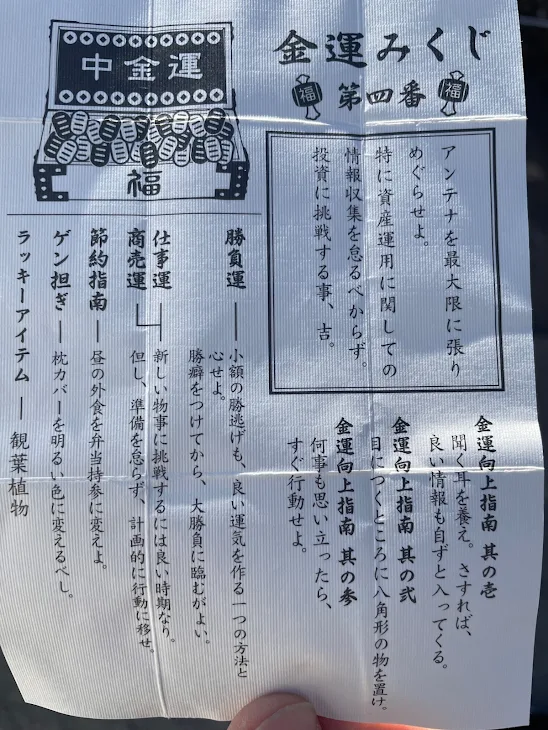 金運みくじ
福
第四番
福
アンテナを最大限に張り
めぐらせよ。
特に資産運用に関しての
情報収集を怠るべからず。
投資に挑戦する事、吉。
金運向上指南 其の壱
聞く耳を養え。さすれば、
良い情報も自ずと入ってくる。
金運向上指南 其の弐
目につくところに八角形の物を置け。
金運向上指南 其の参
何事も思い立ったら、
すぐ行動せよ。
中金運
福
勝負運
小額の勝逃げも、良い運気を作る一つの方法と
心せよ。
勝癖をつけてから、大勝負に臨むがよい。
仕事運
商売運
新しい物事に挑戦するには良い時期なり。
但し、準備を怠らず、計画的に行動に移せ。
節約指南
昼の外食を弁当持参に変えよ。
ゲン担ぎ
枕カバーを明るい色に変えるべし。
ラッキーアイテム
観葉植物